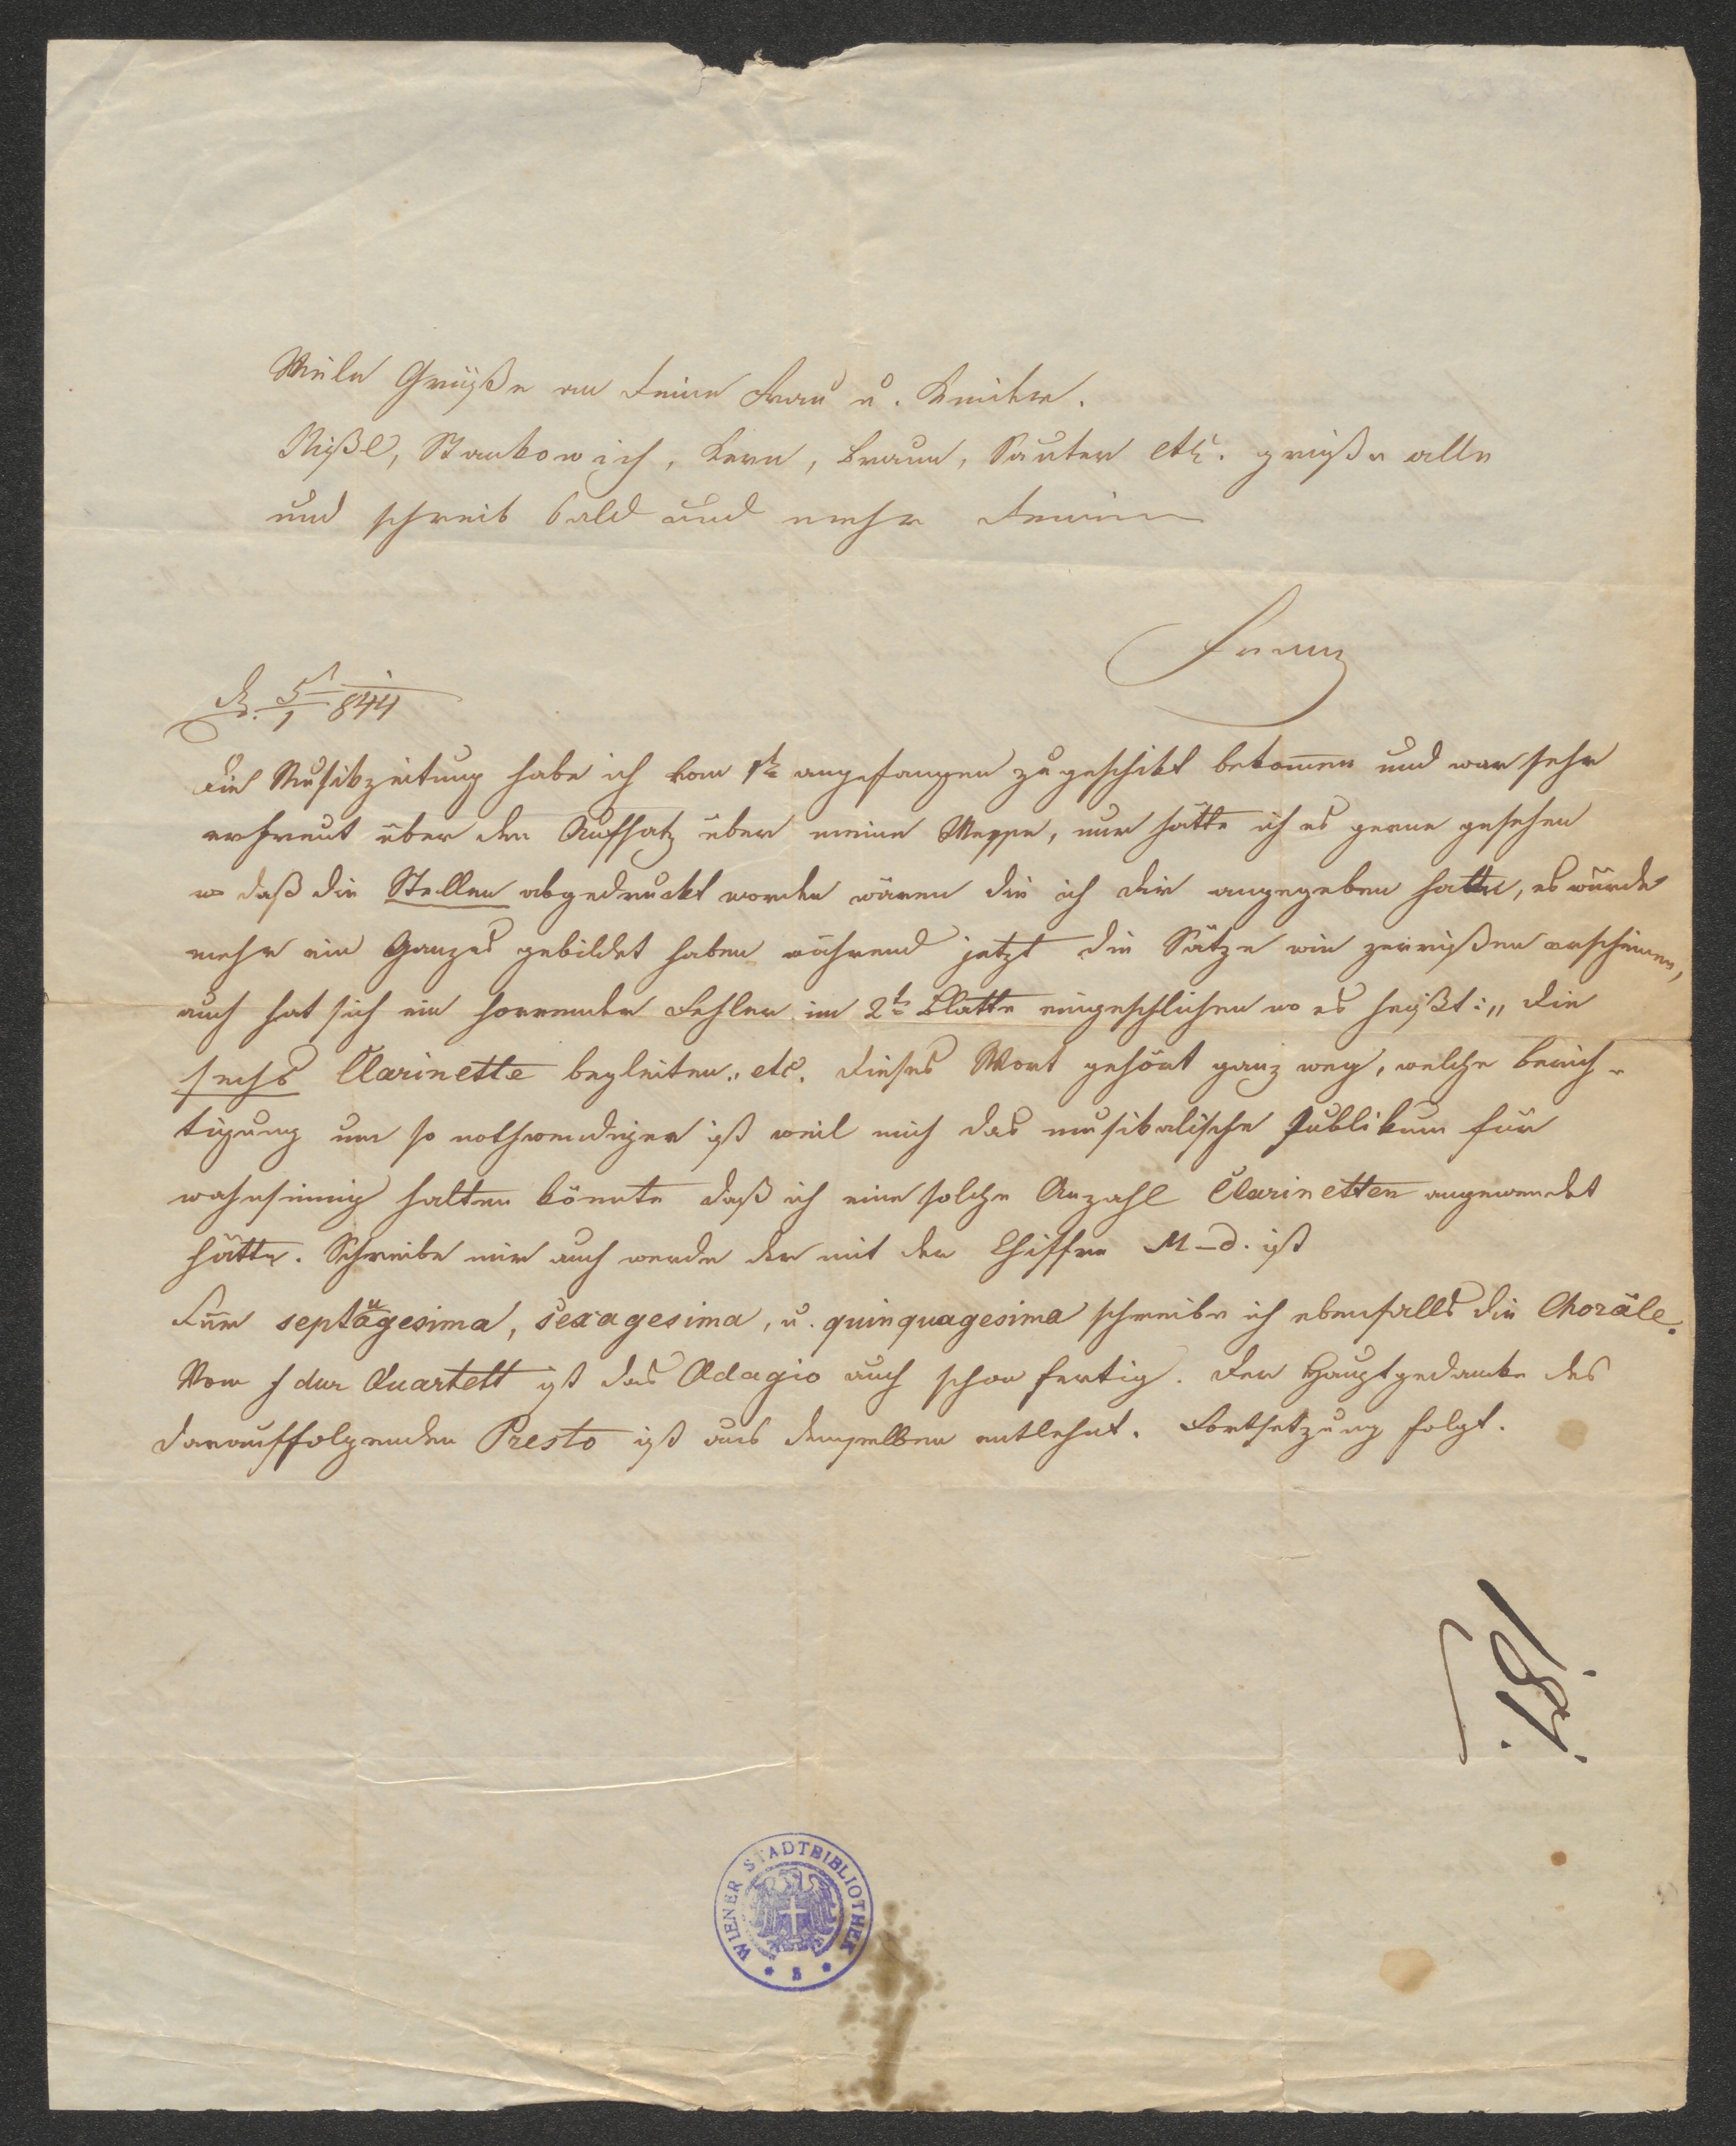 Viele Grüße an deine Frau u. Kinder.
Nißl, Stankowich, Kern, Braun, Sauter etc. grüße alle
und schreib bald und mehr deinem
Franz
d. 5/1 844
Die Musikzeitung habe ich vom 1t angefangen zugeschikt bekom̄en und war sehr
erfreut über den Aufsatz über meine Messe, nur hätte ich es gerne gesehen
daß die Stellen abgedruckt worden wären die ich dir angegeben hatte, es würde
mehr ein Ganzes gebildet haben während jetzt die Sätze wie zerrißen erscheinen,
auch hat sich ein horrender Fehler im 2t Blatte eingeschlichen wo es heißt: „die
sechs Clarinette begleiten„ etc. dieses Wort gehört ganz weg, welche Berich-
tigung um so nothwendiger ist weil mich das musikalische Publikum für
wahnsinnig halten könnte daß ich eine solche Anzahl Clarinetten angewendet
hätte. Schreibe mir auch der mit der Chiffre M–d. ist
Für septuagesima, sexagesima, u. quinquagesima schreibe ich ebenfalls die Choräle.
Vom f dur Quartett ist das Adagio auch schon fertig. Der Hauptgedanke des
darauffolgenden Presto ist aus demselben entlehnt. Fortsetzung folgt.
WIENER STADTBIBLIOTHEK